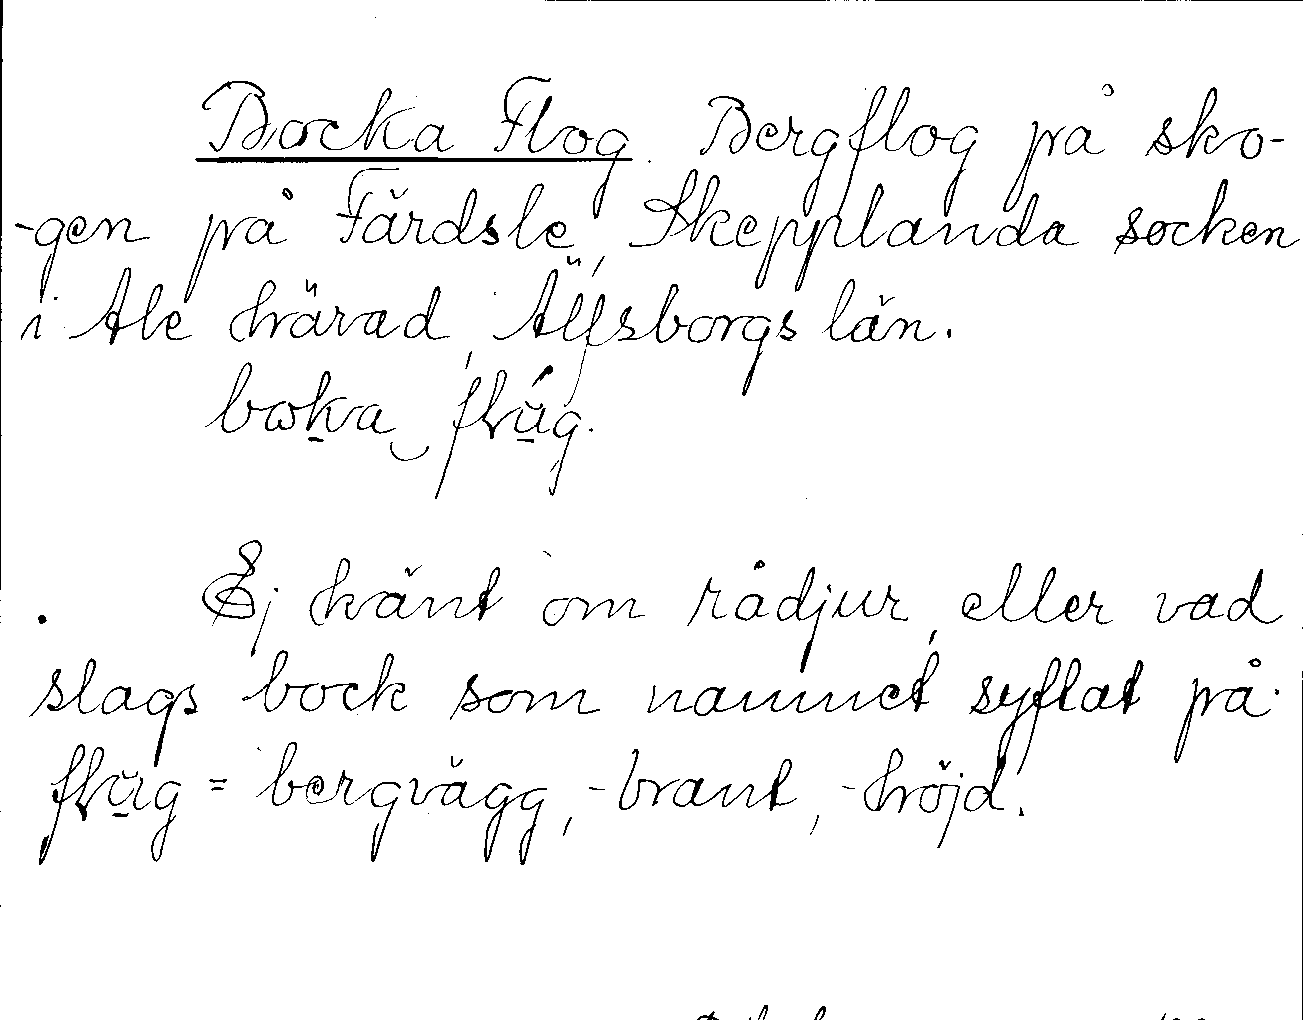 Bocka Flog. Bergflog på sko-
-gen på Färdsle, Skepplanda socken
i Ale härad, Älfsborgs län.
Ej känt om rådjur, eller vad
slags bock som namnet syftat på.
= bergvägg, -brant, -höjd.